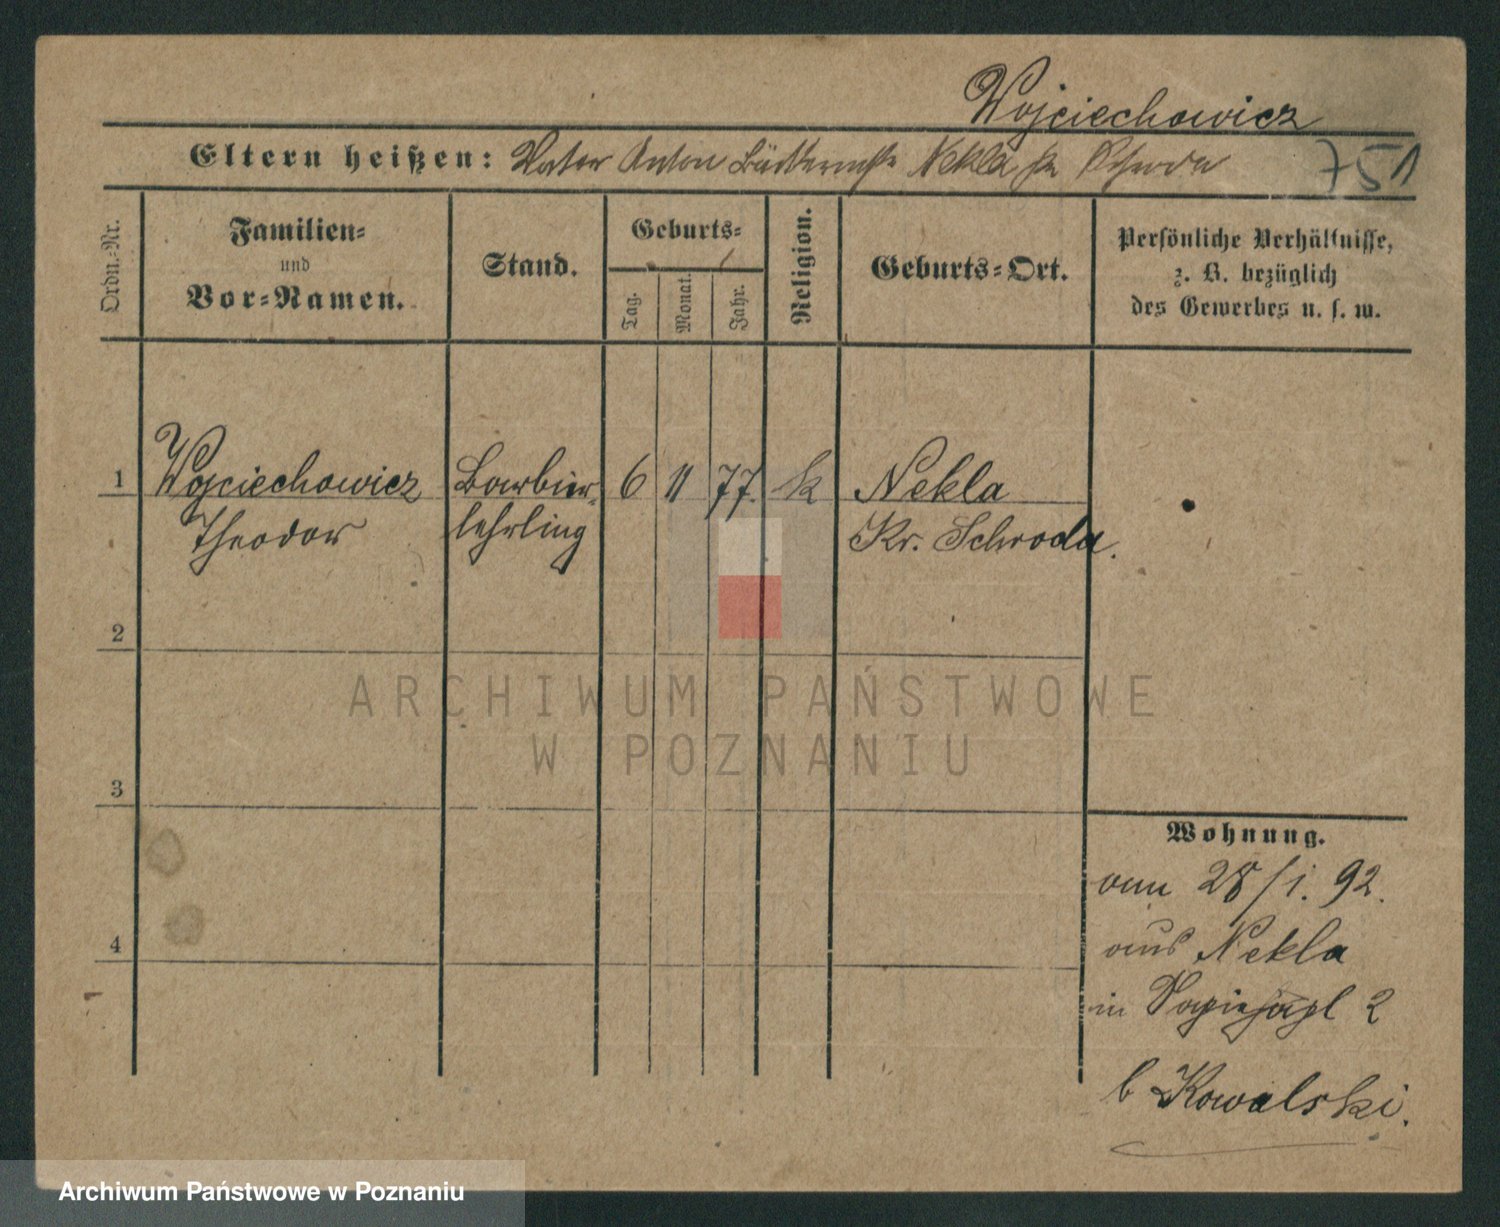 Wojciechowicz
Eltern heißen: Vater Anton Böttcherm Nekla Kr Schroda
751
Ordn.-Nr.
Familien-
und
Vor-Namen.
Stand.
Geburts-
Tag.
Monat.
Jahr.
Religion.
Geburts-Ort.
Persönliche Verhältnisse,
z. B. bezüglich
des Gewerbes u. s. w.
1 Wojciechowicz Barbier- 6 11 77 k Nekla
Theodor lehrling Kr. Schroda.
2
ARCHIWUM PAŃSTWOWE
W POZNANIU
3
Wohnung.
vom 28/1. 92.
aus Nekla
4
in 2
b Kowalski.
Archiwum Państwowe w Poznaniu